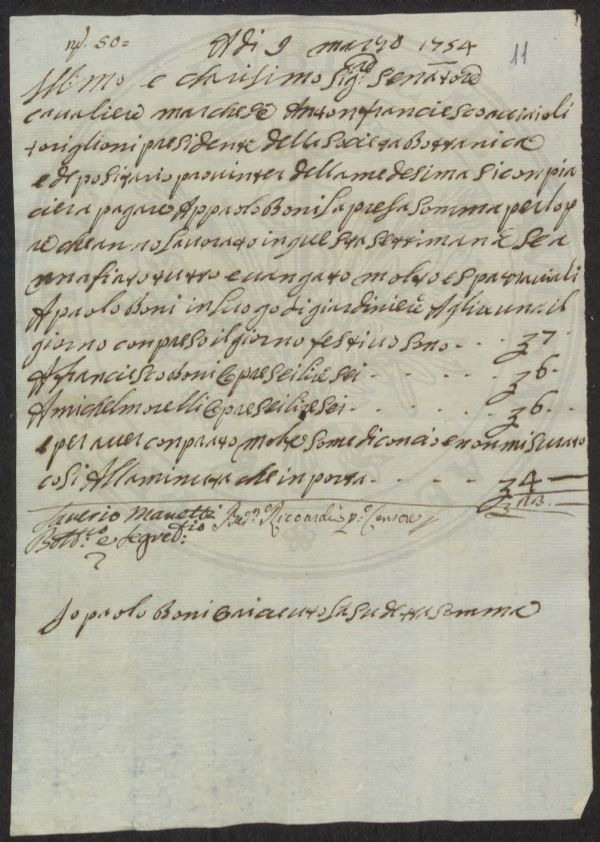 n.° 50=
Adi 9 marzo 1754
11
Illmo e clarisimo Sig:re Senatore
cavaliere marchese Antonfranciescoacciaioli
toriglioni presidente della Societa Bottanica
e depositario provinter della medesima Si conpia
ciera pagare A ppaolo Boni la presa Somma per lop
re che anno lavorato in questa settimana Se a
nnafiato tutto e vangato molto e spartavali
A paolo Boni in luogo di giardiniere Agli una il
giorno conpreso il giorno festivo sono - - - 7 -
A francisco Boni @pre sei lire sei - - - - - 6 -
A michel morelli @pre sei lire sei - - - - - 6 -
e per aver conprato molte some di concio e non misurato
cosi Alla minuta che inporta - - - - - 4 —
Saverio Manetti Riccardi p.° Censore
Bott.co e Segret.rio
Io paolo Boni @ riceuto la su detta somma